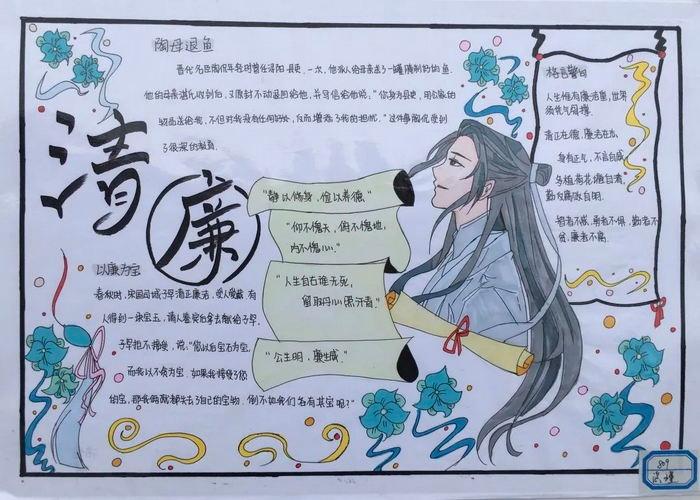 陶母退鱼
晋代名臣陶侃年轻时曾任浔阳县吏。一次，他派人给母亲送了一罐腌制好的鱼.
他的母亲湛氏收到后，又原封不动退回给他，并写信给他说："你身为县吏，用公家的
物品送给我，不但对我没有任何好处，反而增添了我的担忧。"这件事陶侃受到
了很深的教育.
清
廉
"静以修身，俭以养德."
"仰不愧天，俯不愧地，
内不愧心."
"人生自古谁无死，
留取丹心照汗青."
"公生明，廉生威."
以廉为宝
春秋时，宋国司城子罕清正廉洁，受人爱戴.有
人得到一块宝玉，请人鉴定后拿去献给子罕，
子罕拒不接受，说："您以宝石为宝，
而我以不贪为宝.如果我接受了您
的宝，那我俩就都失去了自己的宝物.倒不如我们各有其宝呢？"
格言警句
人生惟有廉洁重，世界
须凭气骨撑.
清正在德，廉洁在志.
身有正气，不言自威
多植荷花塘自清，
勤反腐败政自明.
智者不惑，勇者不惧，勤者不
贫，廉者不腐.
809